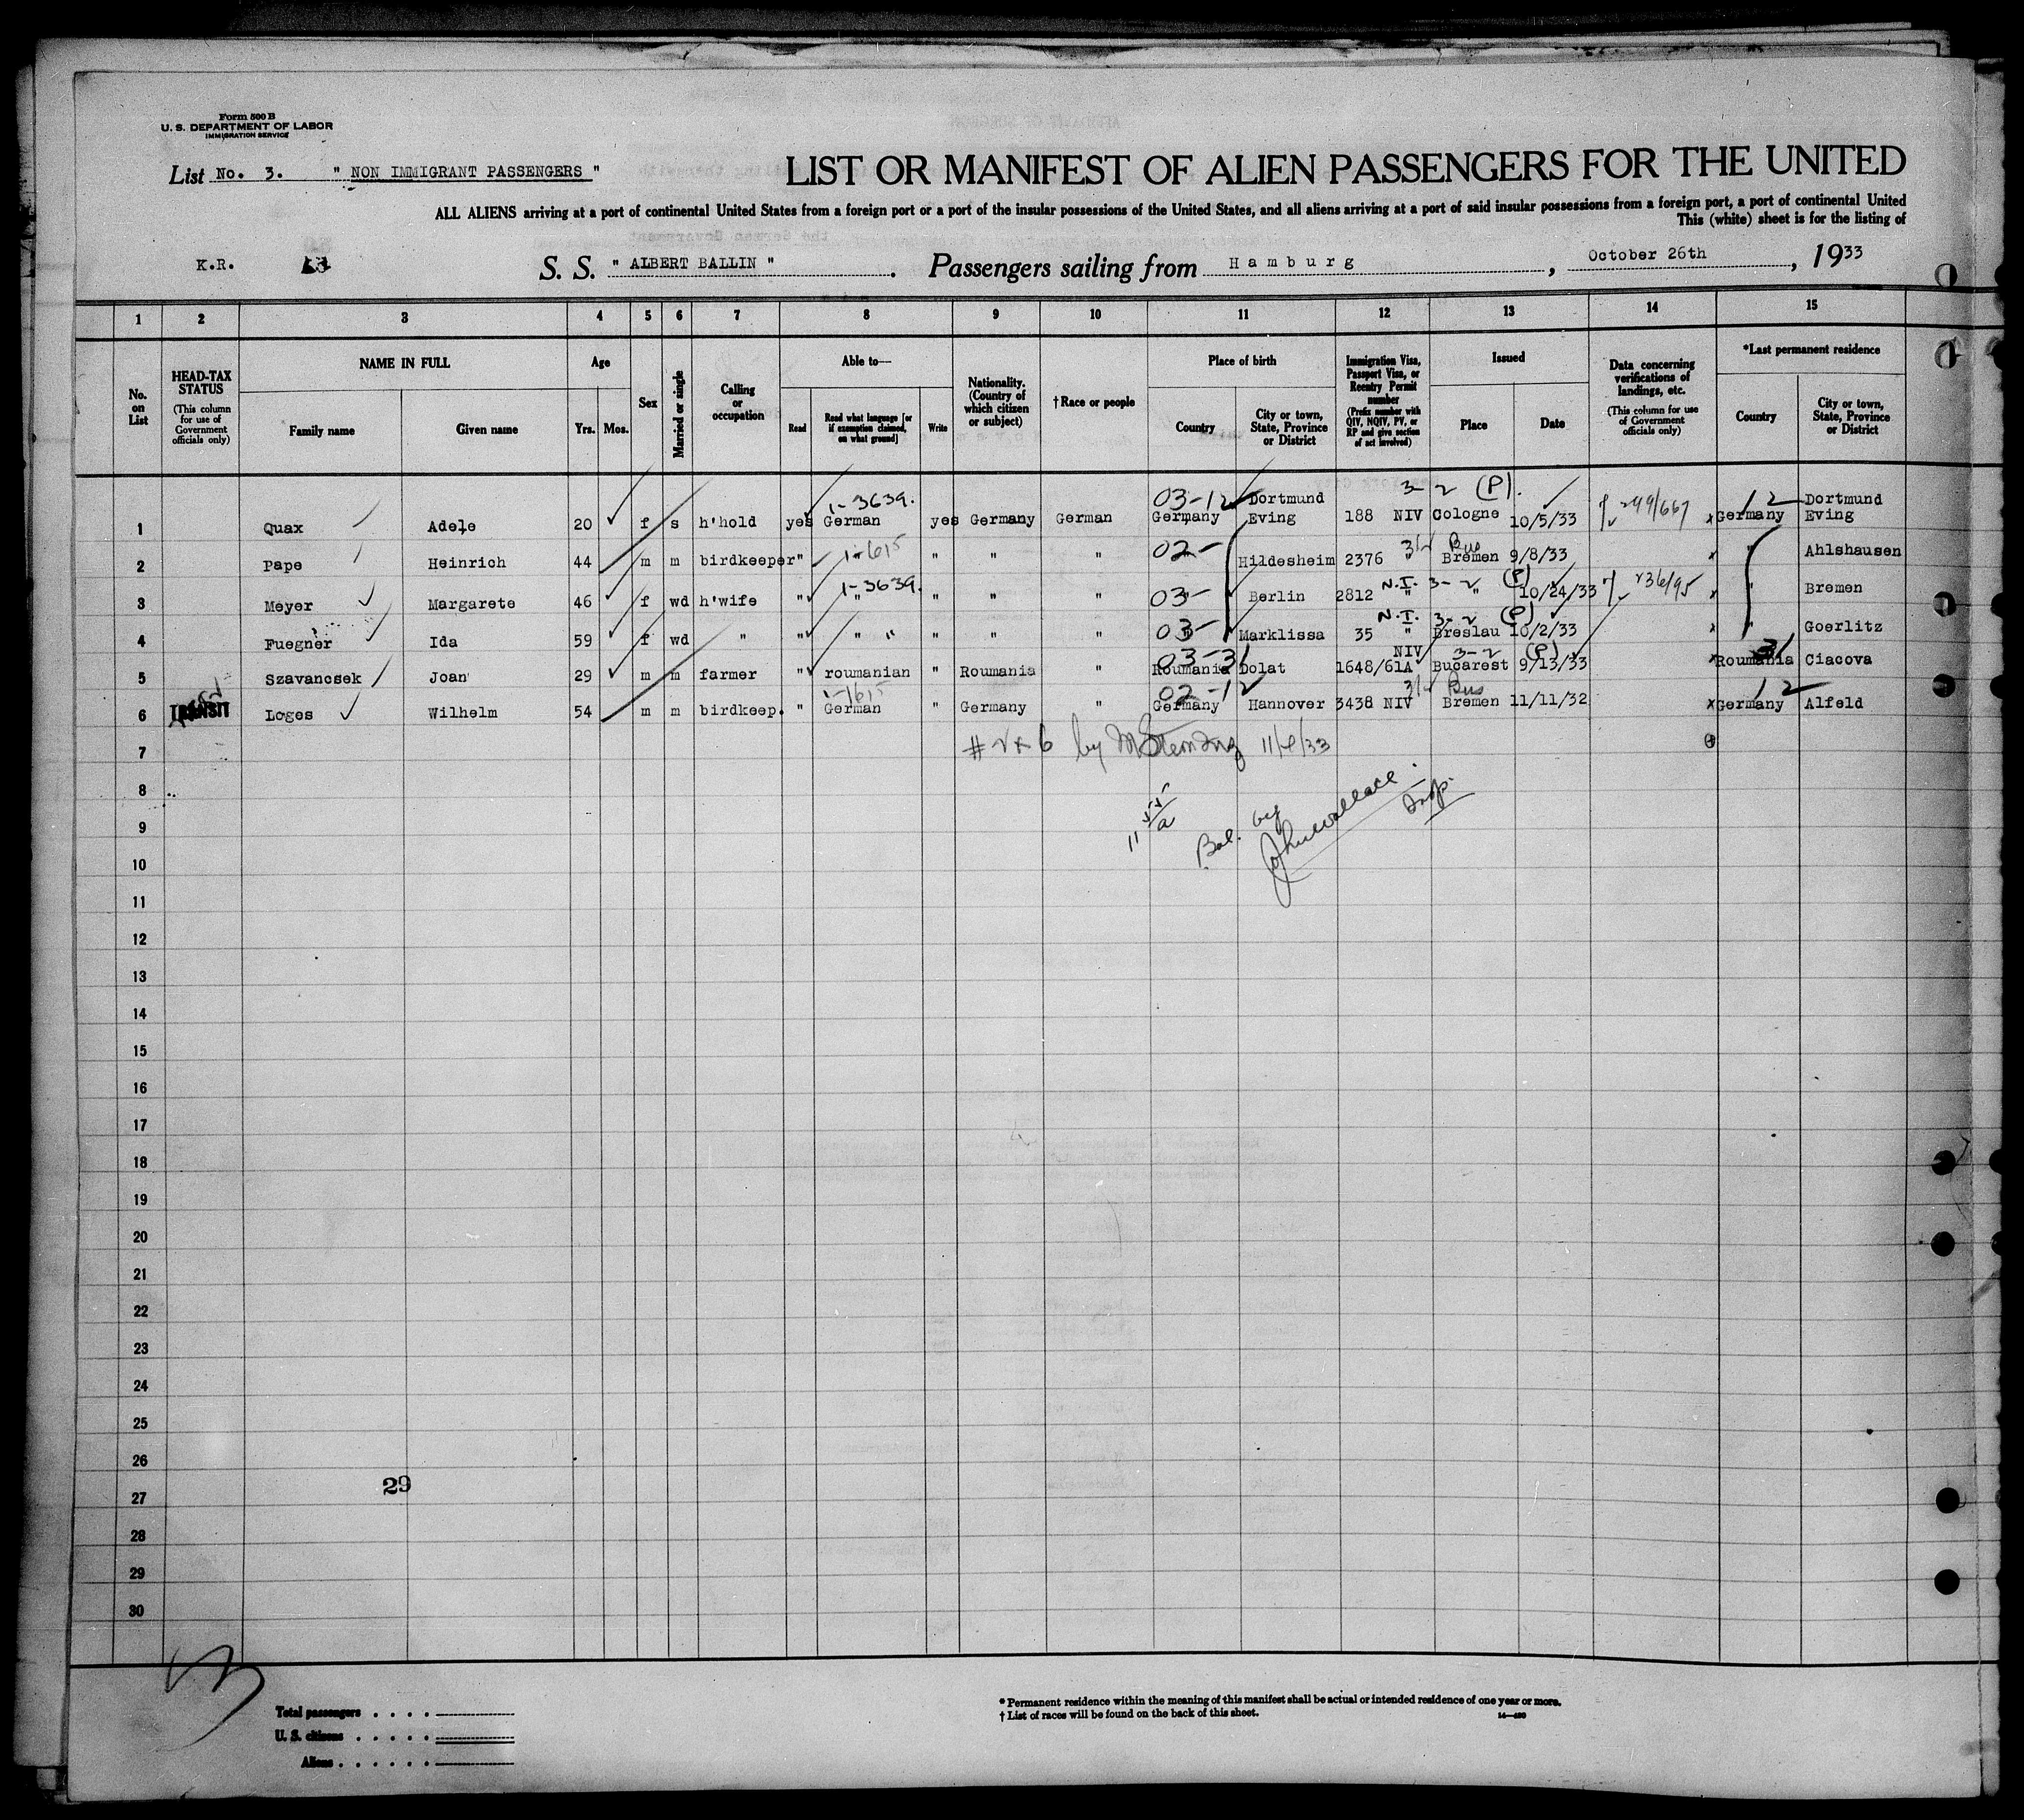 Form 500 B
U. S. DEPARTMENT OF LABOR
IMMIGRATION SERVICE
List No. 3. " NON IMMIGRANT PASSENGERS "
LIST OR MANIFEST OF ALIEN PASSENGERS FOR THE UNITED
ALL ALIENS arriving at a port of continental United States from a foreign port or a port of the insular possessions of the United States, and all aliens arriving at a port of said insular possessions from a foreign port, a port of continental United
This (white) sheet is for the listing of
K.R.
S. S. " ALBERT BALLIN " . Passengers sailing from Hamburg , October 26th , 1933
1 2 3 4 5 6 7 8 9 10 11 12 13 14 15
No. on List
HEAD-TAX STATUS (This column for use of Government officials only)
NAME IN FULL Family name Given name
Age Yrs. Mos.
Sex
Married or single
Calling or occupation
Able to— Read Read what language [or if exemption claimed, on what ground] Write
Nationality. (Country of which citizen or subject)
†Race or people
Place of birth Country City or town, State, Province or District
Immigration Visa, Passport Visa, or Reentry Permit number (Prefix number with QIV, NQIV, PV, or RP and give section of act involved)
Issued Place Date
Data concerning verifications of landings, etc. (This column for use of Government officials only)
*Last permanent residence Country City or town, State, Province or District
1-3639. 03-12 Dortmund 3-2 (P). 12 Dortmund
1 Quax Adele 20 f s h'hold yes German yes Germany German Germany Eving 188 NIV Cologne 10/5/33 Germany Eving
1-1615 02- Bus
2 Pape Heinrich 44 m m birdkeeper " " " " Hildesheim 2376 " Bremen 9/8/33 " Ahlshausen
1-3639. 03- N.I. 3-2 (P)
3 Meyer Margarete 46 f wd h'wife " " " " " " Berlin 2812 " " 10/24/33 " Bremen
03- N.I. 3-2 (P)
4 Fuegner Ida 59 f wd " " " " " " " " Marklissa 35 " Breslau 10/2/33 " Goerlitz
03-31 NIV 3-2 (P) 31
5 Szavancsek Joan 29 m m farmer " roumanian " Roumania " Roumania Dolat 1648/61A Bucarest 9/13/33 Roumania Ciacova
1-1615 02-12 Bus 12
6 TRANSIT Loges Wilhelm 54 m m birdkeep. " German " Germany " Germany Hannover 3438 NIV Bremen 11/11/32 Germany Alfeld
7
8
9 Bal. by John Wallace Insp.
10
11
12
13
14
15
16
17
18
19
20
21
22
23
24
25
26
29
27
28
29
30
Total passengers . . . .
U. S. citizens . . . . .
Aliens . . . . . .
* Permanent residence within the meaning of this manifest shall be actual or intended residence of one year or more.
† List of races will be found on the back of this sheet.